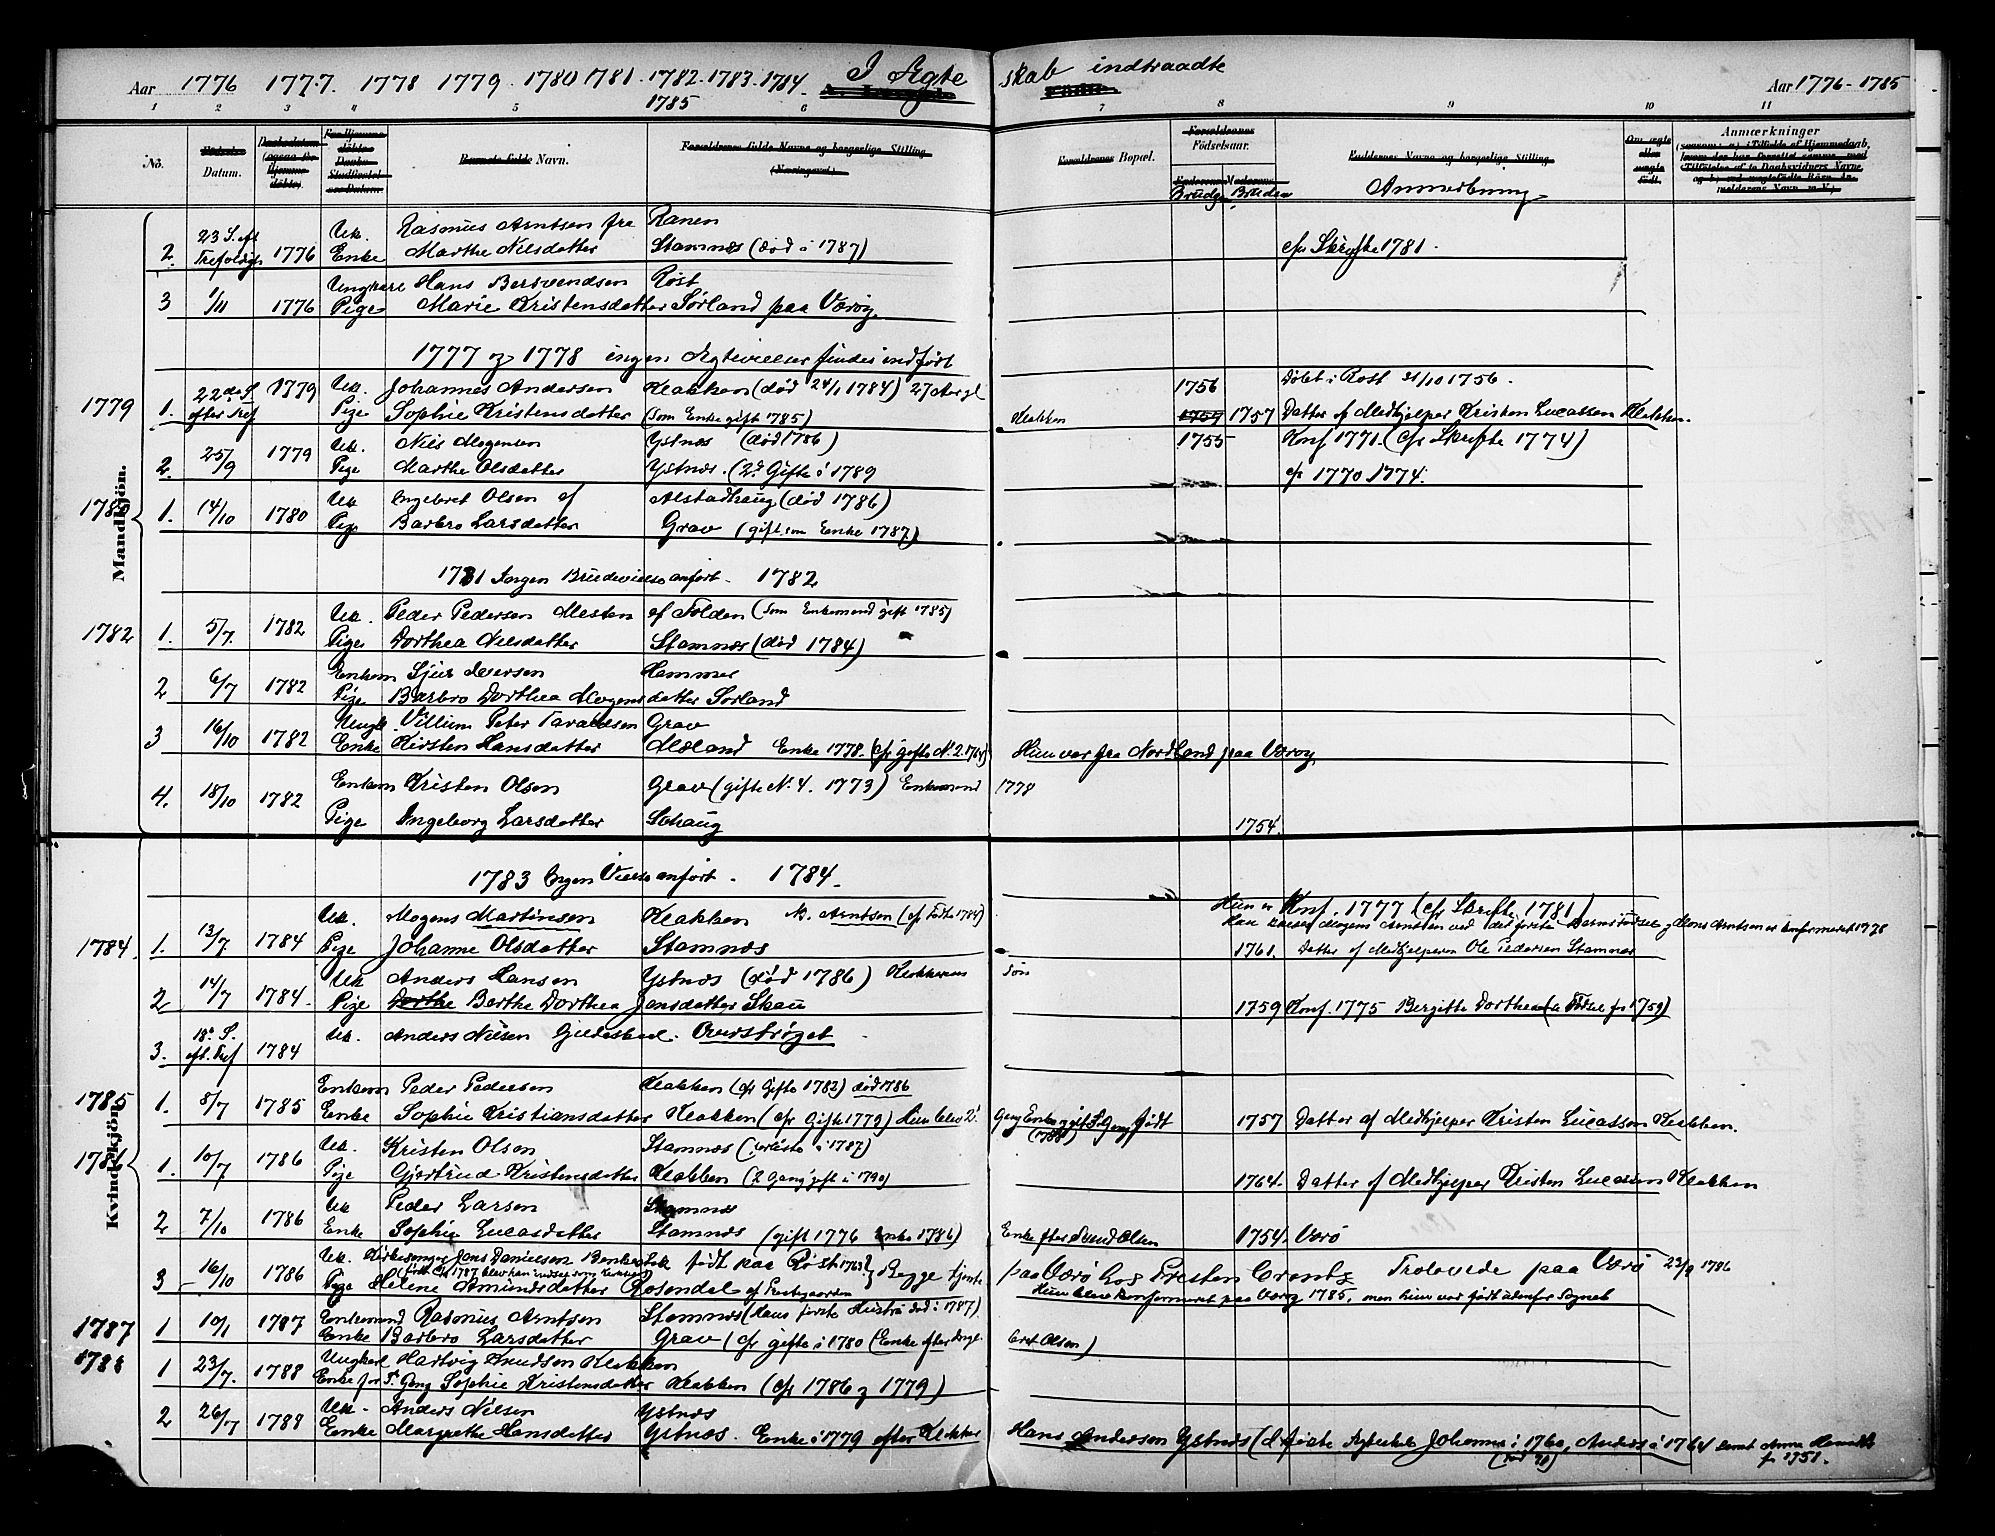 Aar 1776 1777. 1778 1779. 1780 1781. 1782. 1783. 1784. I Ægte
1785
skab indtraadte
Aar 1776 - 1785
1 2 3 4 5 6 7 8 9 10 11
No.
Datum.
Navn.
Bopæl.
Fødselsaar.
Brudg. Bruden
Anmerkning
Anmærkninger
2. 23 S. eft. Trefoldigh. 1776 Uk. Rasmus Arntsen fra Ranen
Enke Marthe Nilsdatter Stamnæs (død i 1787) cfr Skrifte 1781.
3 1/11 1776 Ungkarl Hans Bersvendsen Røst
Pige Marie Kristensdatter Sørland paa Værøy.
1777 og 1778 ingen Ægtevielser findes indført
1779
1. 22de S. efter Tref 1779 Uk. Johannes Andersen Klakken (død 24/1 1784) 27 Aar gl 1756 Døbt i Røst 31/10 1756.
Pige Sophie Kristensdatter (som Enke gift 1785) Klakken 1757 1757 Datter af Medhjelper Kristen Lucassen Klakken.
2. 25/9 1779 Uk. Nils Mogensen Ystnæs (død 1786) 1755 Konf 1771. (cfr Skrifte 1774)
Pige Marthe Olsdatter Ystnæs. (2d Gifte i 1789 cfr 1770. 1774.
Mandkjøn.
1. 14/10 1780 Uk Ingebret Olsen af Alstadhaug (død 1786)
Pige Barbro Larsdatter Grav (gift som Enke 1787)
1781 Ingen Brudevielse anført. 1782
1782
1. 5/7. 1782 Uk. Peder Pedersen Mesten af Folden (som Enkemand gift 1785)
Pige Dorthea Nilsdatter Stamnæs (død 1784)
2 6/7 1782 Enkem Sjur Iversen Hammer
Pige Barbro Dorthea Mogensdatter Sørland
3 16/10 1782 Ungk. Villum Peter Taraldsen Grav
Enke Kirsten Hansdatter Enke 1778. (cfr gifte N. 2. 1764) Hun var fra Nordland paa Værøy.
4. 18/10 1782 Enkem Kristen Olsen Grav (gifte N. 4. 1773) Enkemand 1778
Pige Ingeborg Larsdatter Schaug 1754.
1783 Ingen Vielse anført. 1784.
1784.
1. 13/7 1784 Uk. Mogens Martinsen Klakken N. Arntsen (cf Født 1784) Hun er Konf. 1777 (cfr Skrifte 1781)
Han kaldes Mogens Arntsen ved det første Barns Fødsel og Mons Arntsen er konfirmeret 1778
Pige Johanne Olsdatter Stamnæs 1761. Datter af Medhjelperen Ole Pedersen Stamnæs
2 14/7 1784. Uk Anders Hansen Ystnæs (død 1786) Klokkerens søn
Pige Dorthe Berthe Dorthea Jensdatter Skau 1759 Konf. 1775 Bergitte Dorthea Fødsel for 1759)
3. 18de S. eft. Tref 1784 Uk. Anders Nilsen Gildeskaal. Overstrøget.
1785
1. 8/7 1785 Enkem Peder Pedersen Klakken (cfr Gifte 1782) død 1786
Enke Sophie Kristiansdatter Klakken (cfr Gifte 1779) Hun blev 2. Gang Enke og gift 3. Gang (1788) født 1757 Datter af Medhjelper Kristen Lucassen Klakken.
Kvindekjøn.
1. 10/7 1786 Uk. Kristen Olsen Stamnæs (forliste i 1787)
Pige Gjertrud Kristensdatter Klakken (2 Gang gift i 1790) 1764. Datter af Medhjelper Kristen Lucassen Klakken
2 7/10 1786 Uk Peder Larsen Stamnæs
Enke Sophie Lucasdatter Stamnæs (gift 1776 Enke 1786) Enke efter Svend Olsen 1754. Værø
3 16/10 1786 Uk. Kirkesanger Jens Danielsen født paa Røst 1763? Begge tjente paa Værø hos Presten Trolovede paa Værø 23/9 1786
Pige Helene Amundsdatter Rosendal af Prestegaarden Hun blev konfirmeret paa Værøy 1785, men hun var født udenfor Sognet
1787
1 10/1 1787 Enkemand Rasmus Arntsen Stamnæs (Hans første Hustru død i 1787)
Enke Barbro Larsdatter Grav (cfr gifte i 1780 (Enke efter Ingebret Olsen)
1788
1 23/7. 1788 Ungkarl Hartvig Knudsen Klakken
Enke for 2. Gang Sophie Kristensdatter Klakken (cfr 1786 og 1779)
2 26/7 1788 Uk. Anders Nilsen Ystnæs
Enke Margrethe Hansdatter Ystnæs. Enke i 1779 efter Klokker Hans Anderssen Ystnæs (d første Johanna i 1760, Anders i 1764 samt Anna
(død 70) f 1751.